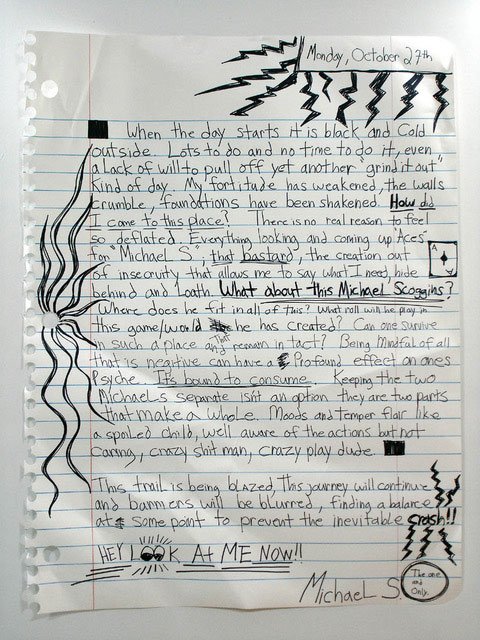 Monday, October 27th
When the day starts it is black and Cold
outside. Lots to do and no time to do it, even
a Lack of will to pull off yet another "grind it out"
Kind of day. My fortitude has weakened, the walls
crumble, foundations have been shaken. How did
I come to this place? There is no real reason to feel
so deflated. Everything looking and coming up "Aces"
for "Michael S", that bastard, the creation out
of insecurity that allows me to say what I need, hide
behind and Loath. What about this Michael Scoggins?
Where does he fit in all of this? What roll will he play in
this game/world he has created? Can one survive
in such a place and that remain in tact? Being Mindful of all
that is negative can have a Profound effect on ones
Psyche. It's bound to consume. Keeping the two
Michaels separate isnt an option they are two parts
that make a whole. Moods and temper flair like
a spoiled child, well aware of the actions but not
Caring, crazy shit man, crazy play dude.
This trail is being blazed, This journey will continue
and banners will be blurred, finding a balance
at some point to prevent the inevitable crash!!
HEY LOOK At ME NOW!!
Michael S.
The one
and
Only.
A
A